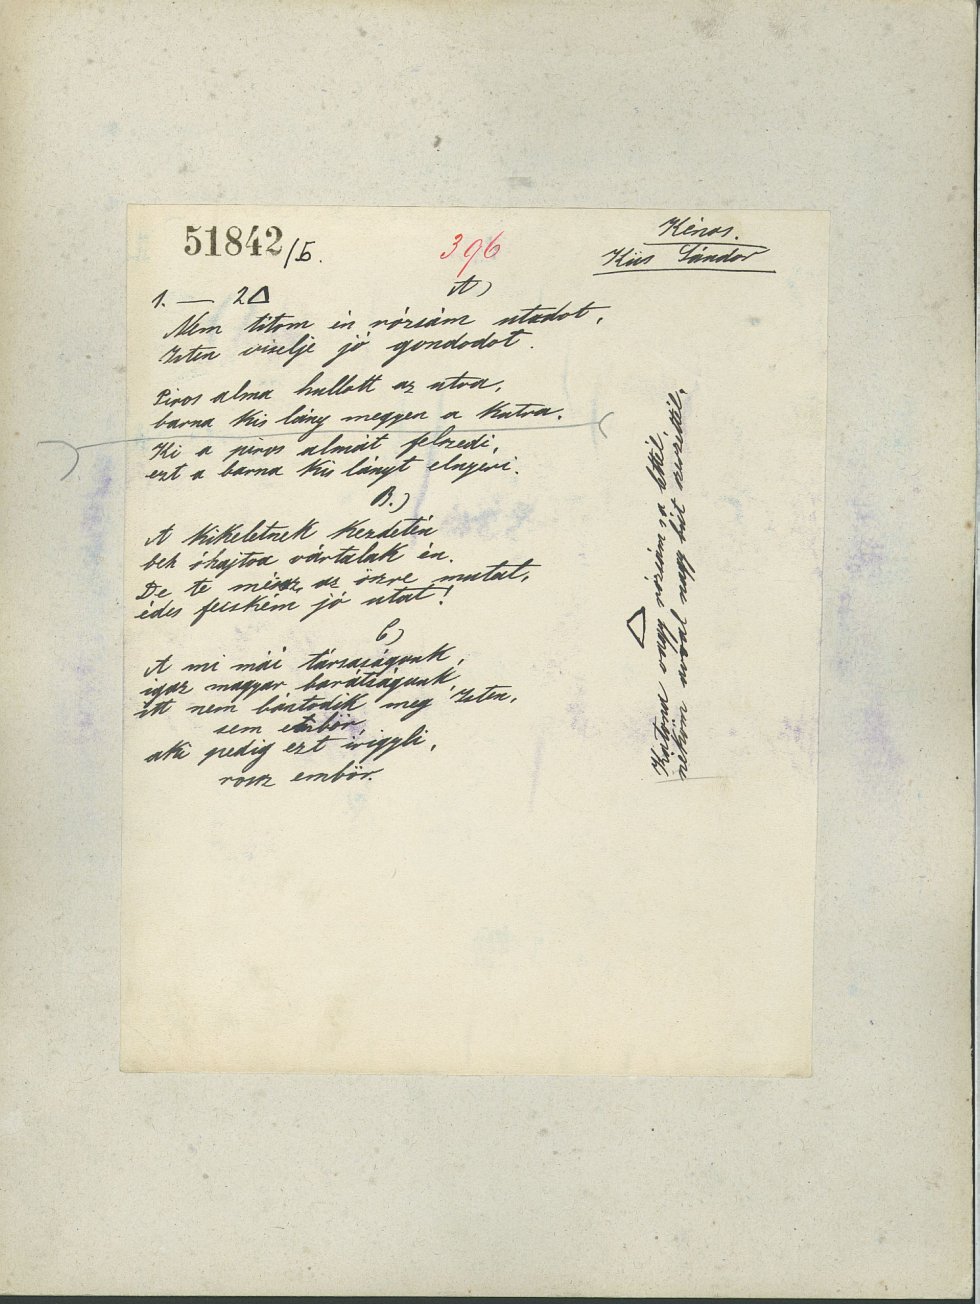 51842/5.
396
Kénos.
Kiss Sándor
A)
1. — 2△
Nem titom én rózsám utadot,
Isten viselje jó gondodot.
Piros alma hullott az utra,
barna kis lány megyen a kutra.
Ki a piros almát felszedi,
ezt a barna kis lányt elnyeri.
B.)
A kikeletnek kezdetén
beh óhajtva vártalak én.
De te mész, az őszre mutat,
édes fecském jó utat!
C)
A mi mái társaságunk,
igaz magyar barátságunk,
itt nem bántodik meg Isten,
sem embör,
aki pedig ezt irigyli,
rossz embör.
△
Katona vagy rózsám, a lettél,
nekem avval nagy bút szereztél.